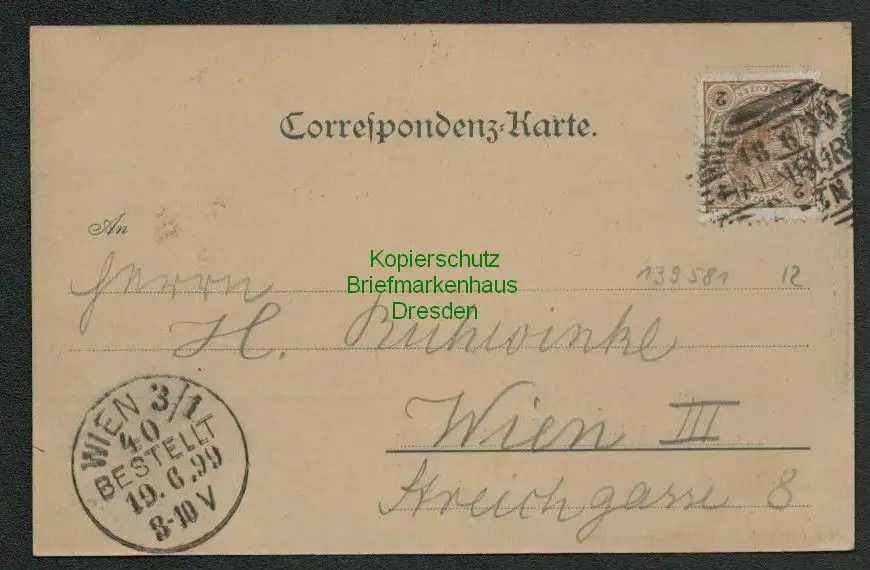 Correspondenz-Karte.
2 2
18 6 99
An
Kopierschutz
Briefmarkenhaus
Dresden
139581 12
Herrn
H. Rühlwinkl
Wien III
Streichgasse 8
WIEN 3/1
40
BESTELLT
19.6.99
8-10 V